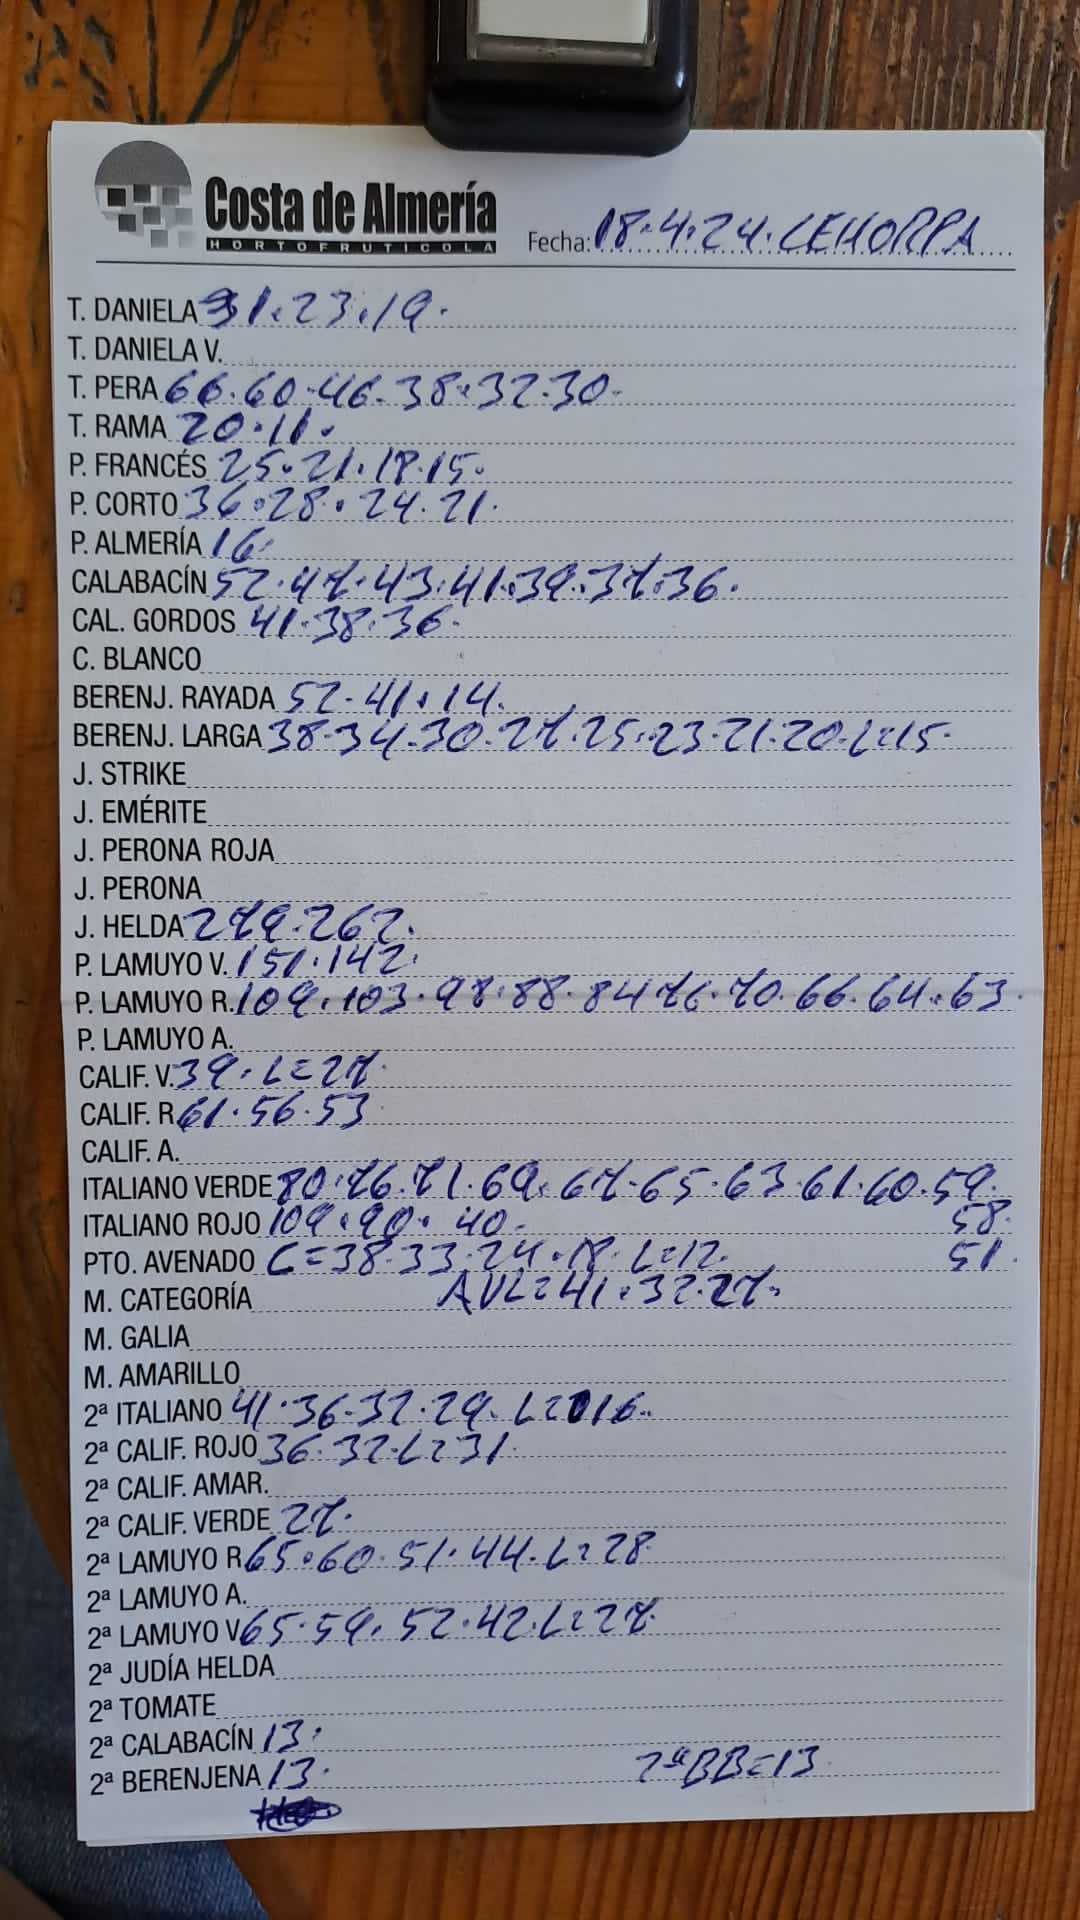 Costa de Almería
HORTOFRUTICOLA
Fecha: 18.4.24. CEHORPA
T. DANIELA 31.23.19.
T. DANIELA V.
T. PERA 66.60.46.38.32.30.
T. RAMA 20.11.
P. FRANCÉS 25.21.18.15.
P. CORTO 36.28.24.21.
P. ALMERÍA 16.
CALABACÍN 52.47.43.41.39.37.36.
CAL. GORDOS 41.38.36.
C. BLANCO
BERENJ. RAYADA 52.41.14.
BERENJ. LARGA 38.34.30.27.25.23.21.20.L=15.
J. STRIKE
J. EMÉRITE
J. PERONA ROJA
J. PERONA
J. HELDA 279.262.
P. LAMUYO V. 151.142.
P. LAMUYO R. 109.103.98.88.84 76.70.66.64.63.
P. LAMUYO A.
CALIF. V. 39.L=27.
CALIF. R 61.56.53
CALIF. A.
ITALIANO VERDE 80.76.71.69.67.65.63.61.60.59.
ITALIANO ROJO 109.90.40. 58.
PTO. AVENADO C=38.33.24.18.L=12. 51.
M. CATEGORÍA AVL=41.32.27.
M. GALIA
M. AMARILLO
2ª ITALIANO 41.36.32.29.L=16.
2ª CALIF. ROJO 36.32.L=31.
2ª CALIF. AMAR.
2ª CALIF. VERDE 27.
2ª LAMUYO R 65.60.51.44.L=28
2ª LAMUYO A.
2ª LAMUYO V. 65.59.52.42.L=27.
2ª JUDÍA HELDA
2ª TOMATE
2ª CALABACÍN 13.
2ª BERENJENA 13. 2ªBB=13.